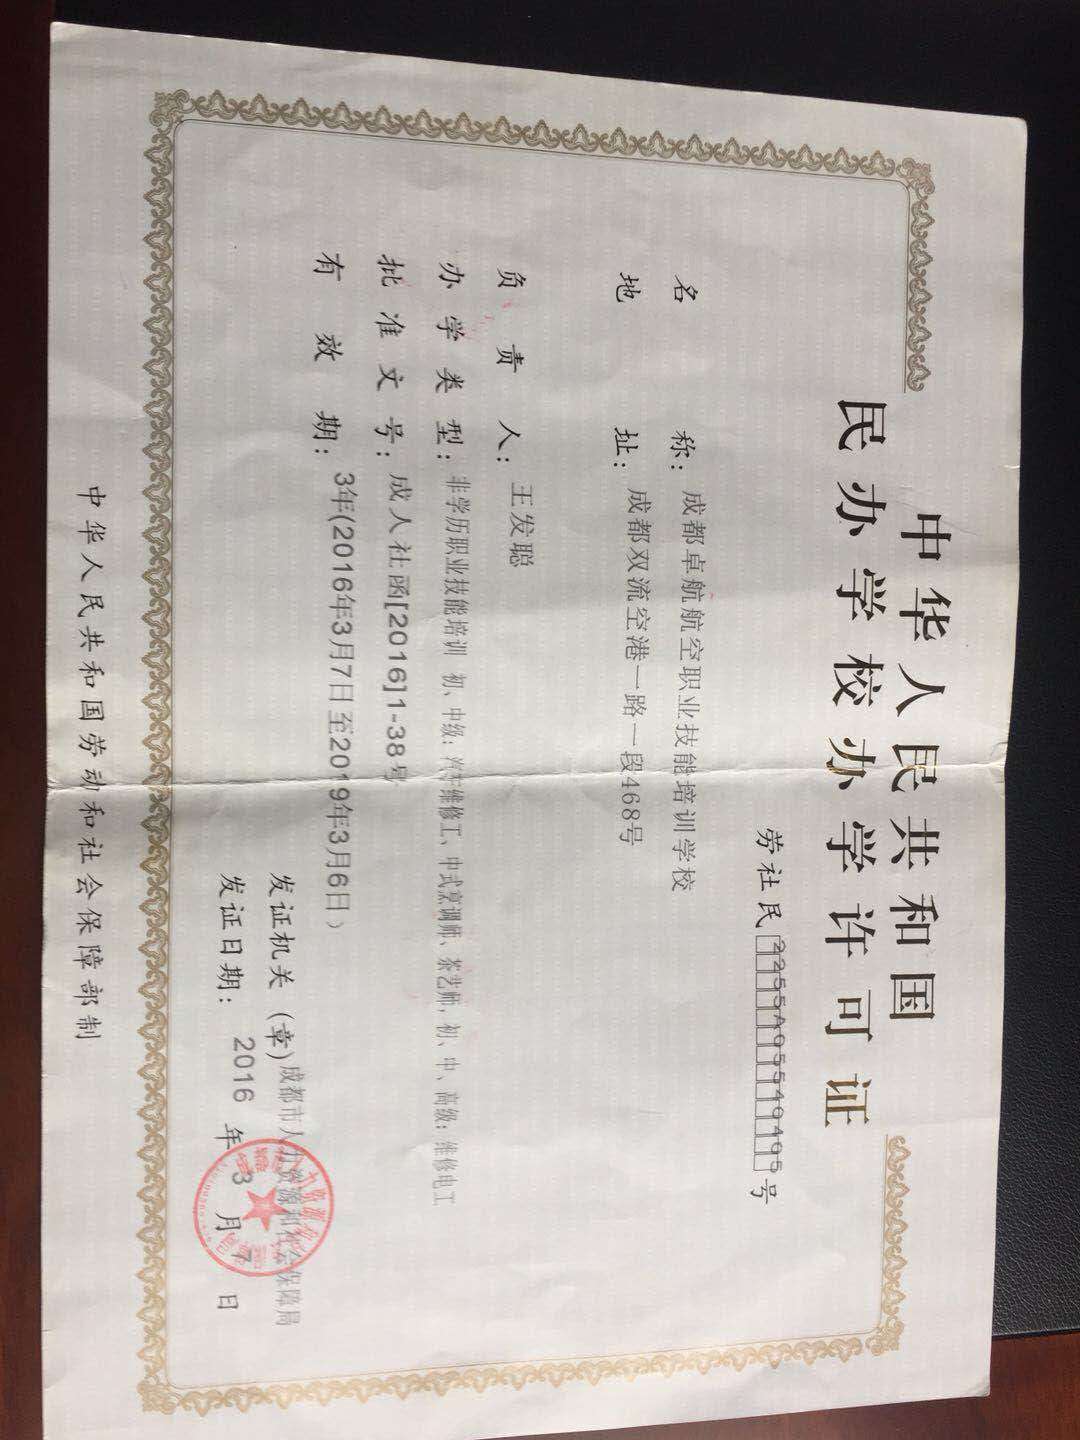 中华人民共和国
民办学校办学许可证
劳社民2255A05549495号
名称：成都卓航航空职业技能培训学校
地址：成都双流空港一路一段468号
负责人：王发聪
办学类型：非学历职业技能培训 初、中级：汽车维修工、中式烹调师、茶艺师，初、中、高级：维修电工
批准文号：成人社函[2016]1-38号
有效期：3年(2016年3月7日至2019年3月6日）
发证机关（章）成都市人力资源和社会保障局
发证日期：2016年3月7日
中华人民共和国劳动和社会保障部制